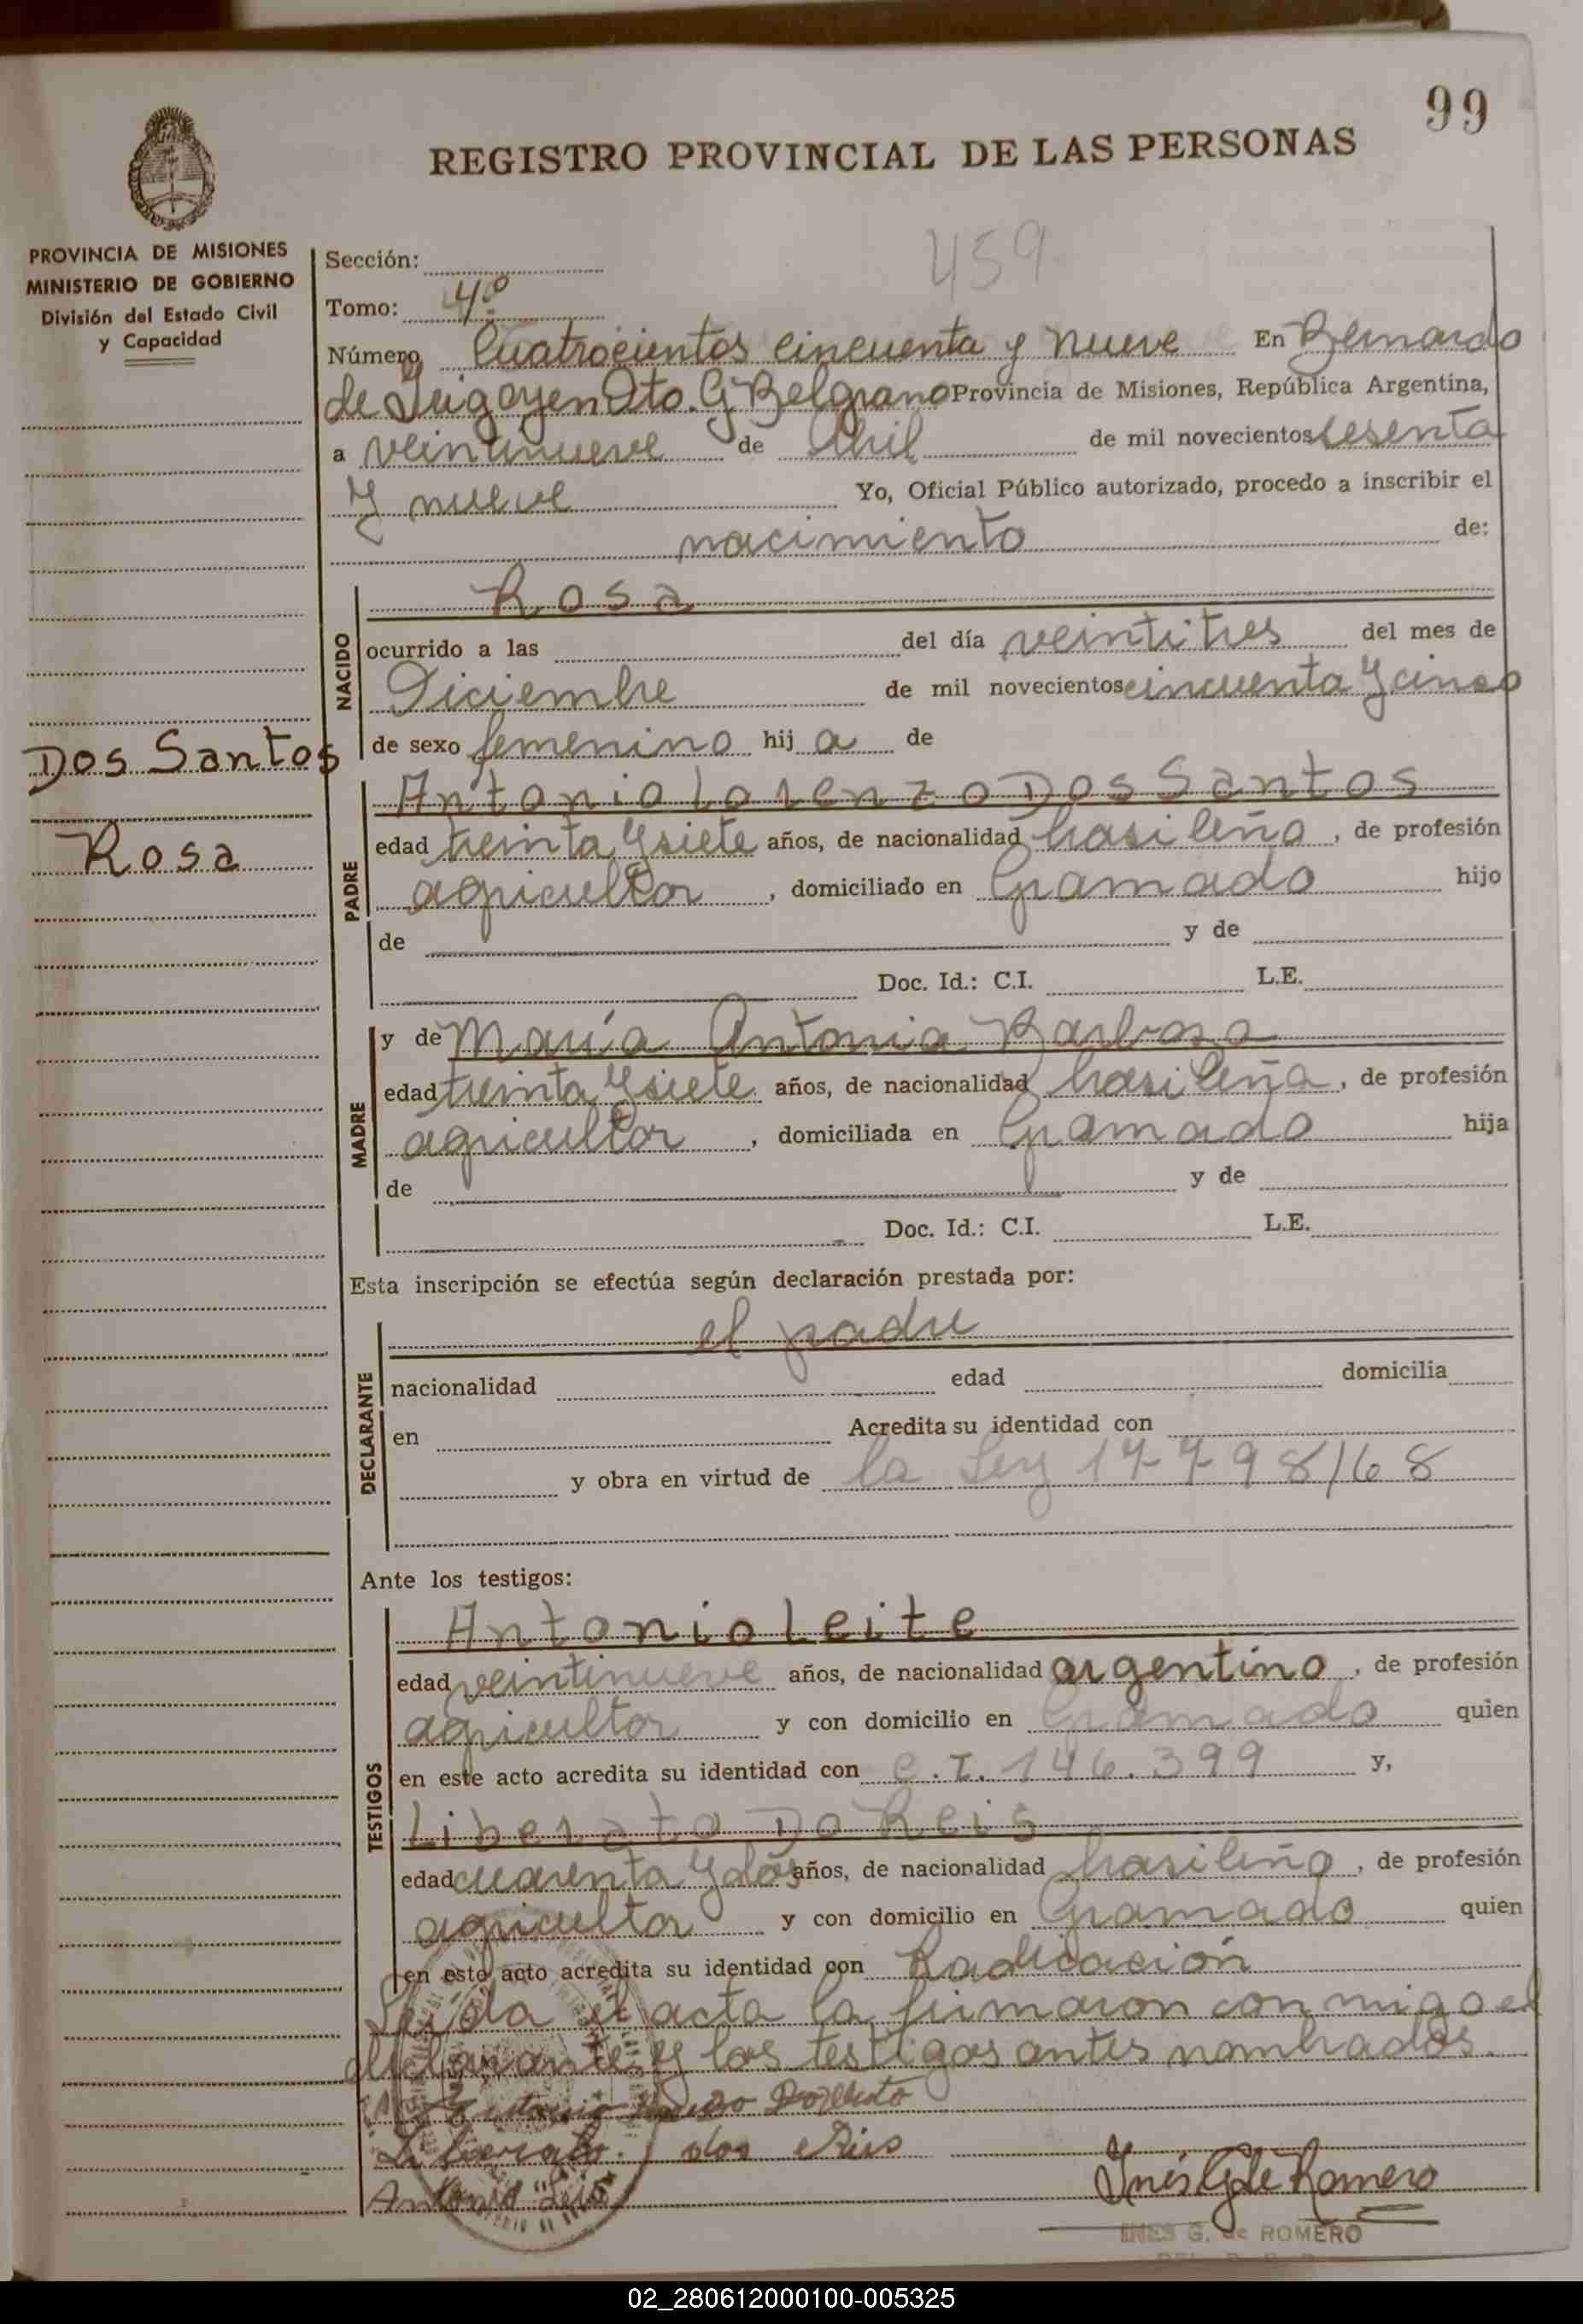 99
REGISTRO PROVINCIAL DE LAS PERSONAS
PROVINCIA DE MISIONES
MINISTERIO DE GOBIERNO
División del Estado Civil
y Capacidad
459
Sección:
Tomo: 4º
Número Cuatrocientos cincuenta y nueve En Bernardo
de Irigoyen Dto. G Belgrano Provincia de Misiones, República Argentina,
a veintinueve de Abril de mil novecientos sesenta
y nueve Yo, Oficial Público autorizado, procedo a inscribir el
nacimiento de:
NACIDO
Rosa
ocurrido a las del día veintitres del mes de
Diciembre de mil novecientos cincuenta y cinco
de sexo femenino hij a de
Dos Santos
Rosa
PADRE
Antonio Lorenzo Dos Santos
edad treinta y siete años, de nacionalidad brasileño, de profesión
agricultor, domiciliado en Gramado hijo
de y de
Doc. Id.: C.I. L.E.
MADRE
y de María Antonia Barboza
edad treinta y siete años, de nacionalidad brasileña, de profesión
agricultor, domiciliada en Gramado hija
de y de
Doc. Id.: C.I. L.E.
Esta inscripción se efectúa según declaración prestada por:
DECLARANTE
el padre
nacionalidad edad domicilia
en Acredita su identidad con
y obra en virtud de la Ley 17798/68
Ante los testigos:
TESTIGOS
Antonio Leite
edad veintinueve años, de nacionalidad argentino, de profesión
agricultor y con domicilio en Gramado quien
en este acto acredita su identidad con C.I. 146.399 y,
Liberato Do Reis
edad cuarenta y dos años, de nacionalidad brasileño, de profesión
agricultor y con domicilio en Gramado quien
en esto acto acredita su identidad con Radicación
Leida el acta la firmaron con migo el
declarante y los testigos antes nombrados.
Antonio
Liberato dos Reis
Antonio Leite
Inés G de Romero
INES G. de ROMERO
02_280612000100-005325